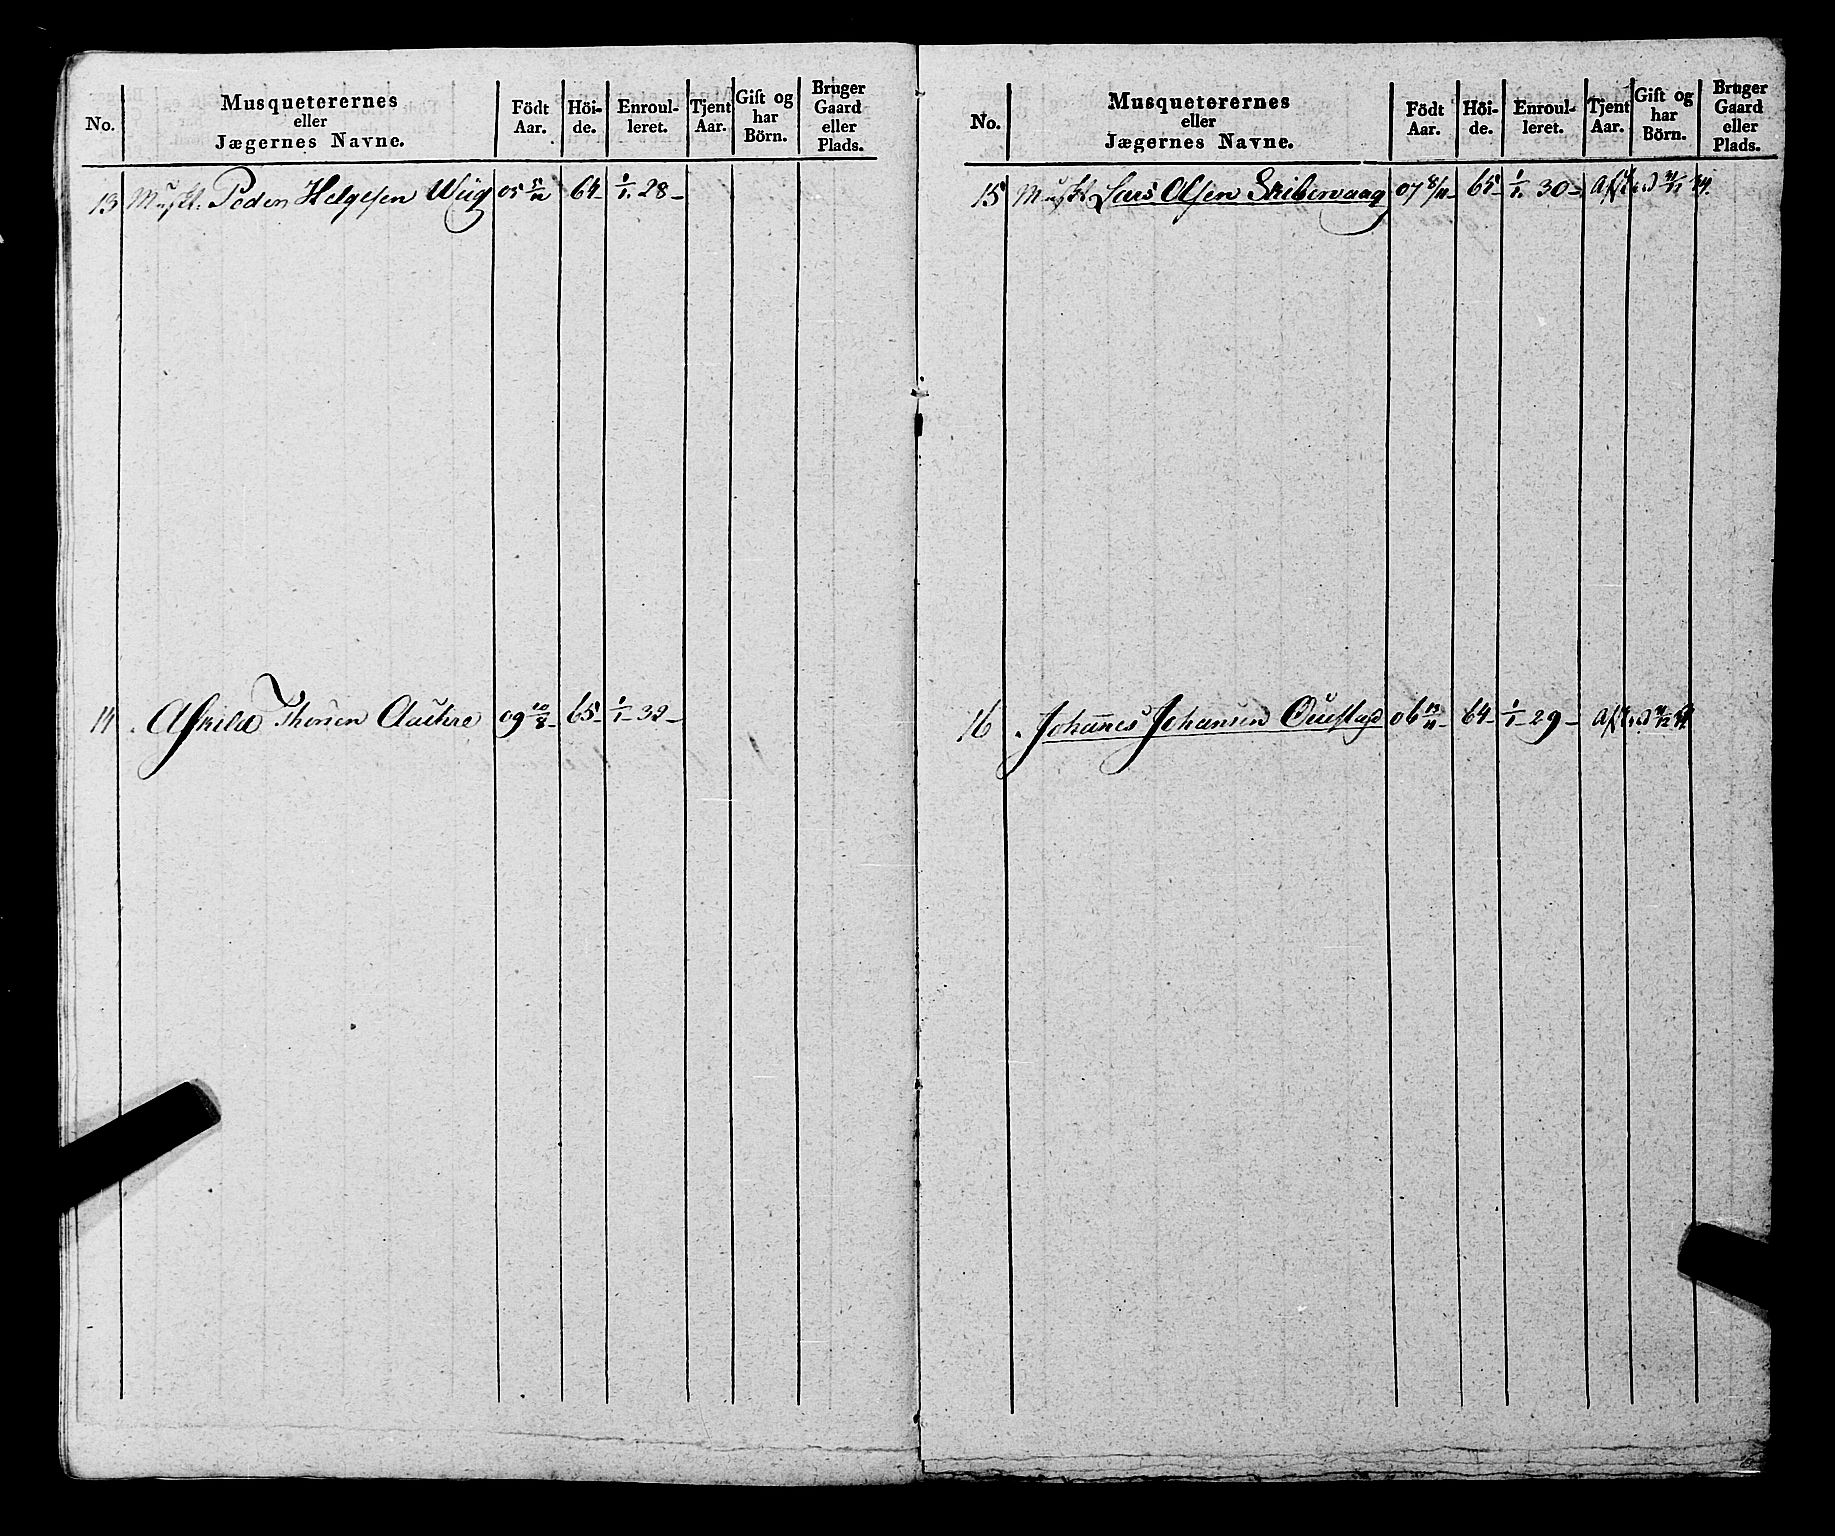 No.
Musqueterernes
eller
Jægernes Navne.
Födt
Aar.
Höi-
de.
Enroul-
leret.
Tjent
Aar.
Gift og
har
Börn.
Bruger
Gaard
eller
Plads.
13 Muskt. Peder Helgesen Wiig 05 5/12 64- 1/1. 28-
14. Thorsen 09 10/8- 65- 1/1- 32-
No.
Musqueterernes
eller
Jægernes Navne.
Födt
Aar.
Höi-
de.
Enroul-
leret.
Tjent
Aar.
Gift og
har
Börn.
Bruger
Gaard
eller
Plads.
15 Muskt Lars Olsen Skibervaag 07 8/11- 65- 1/1. 30-
16. Johannes Johansen 06 64- 1/1- 29-